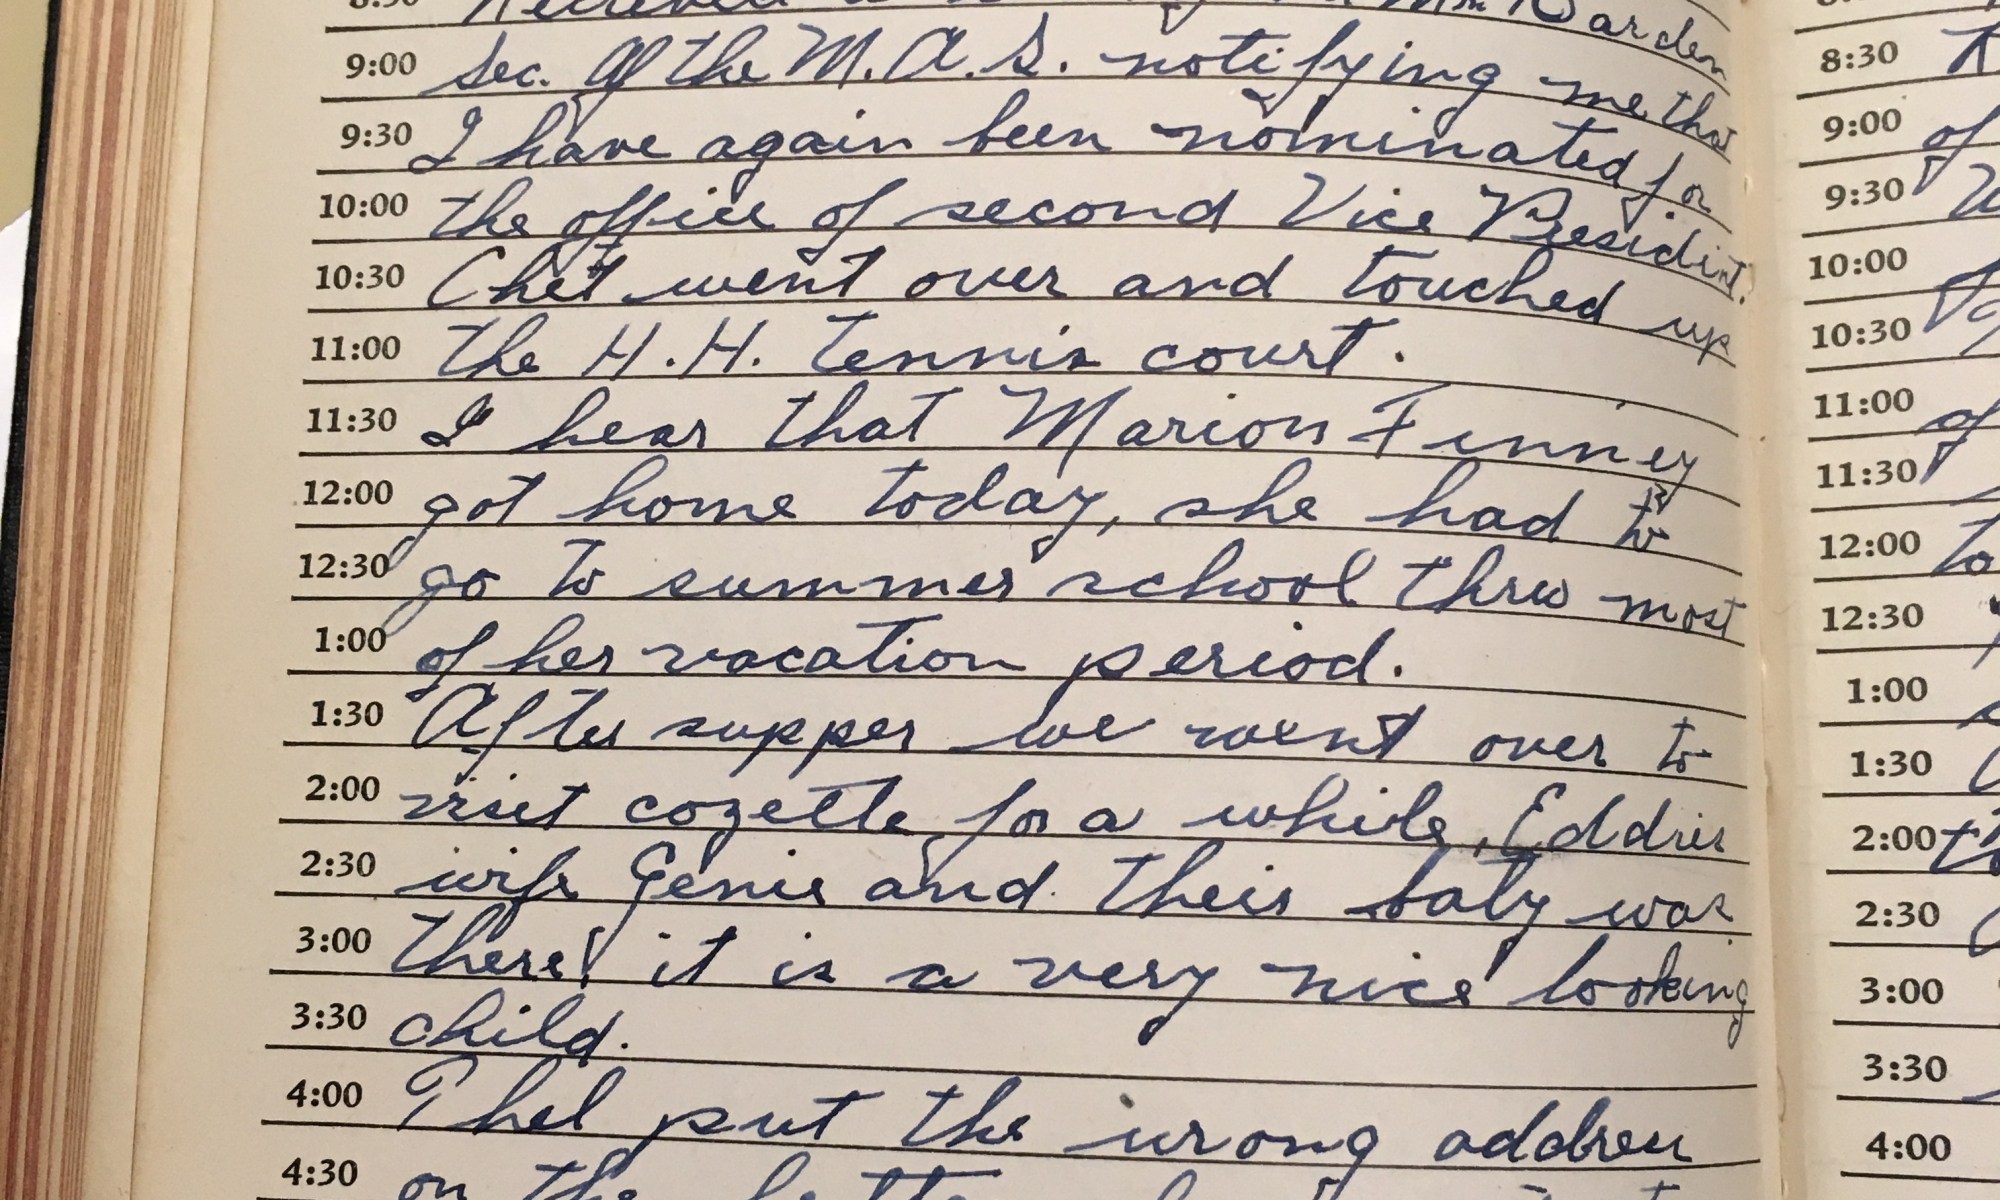 8:30 Received
9:00 Sec. Of the M.A.S. notifying me that
9:30 I have again been nominated for
10:00 the office of second Vice President.
10:30 Chet went over and touched up
11:00 the H.H. tennis court.
11:30 I hear that Marion Finney
12:00 got home today, she had to
12:30 go to summer school thru most
1:00 of her vacation period.
1:30 After supper we went over to
2:00 visit cozette for a while, Eddies
2:30 wife Genie and their baby was
3:00 there! it is a very nice looking
3:30 child.
4:00 Thel put the wrong address
4:30 on the
8:30
9:00 of
9:30
10:00
10:30
11:00 of
11:30
12:00 to
12:30
1:00
1:30
2:00
2:30
3:00
3:30
4:00